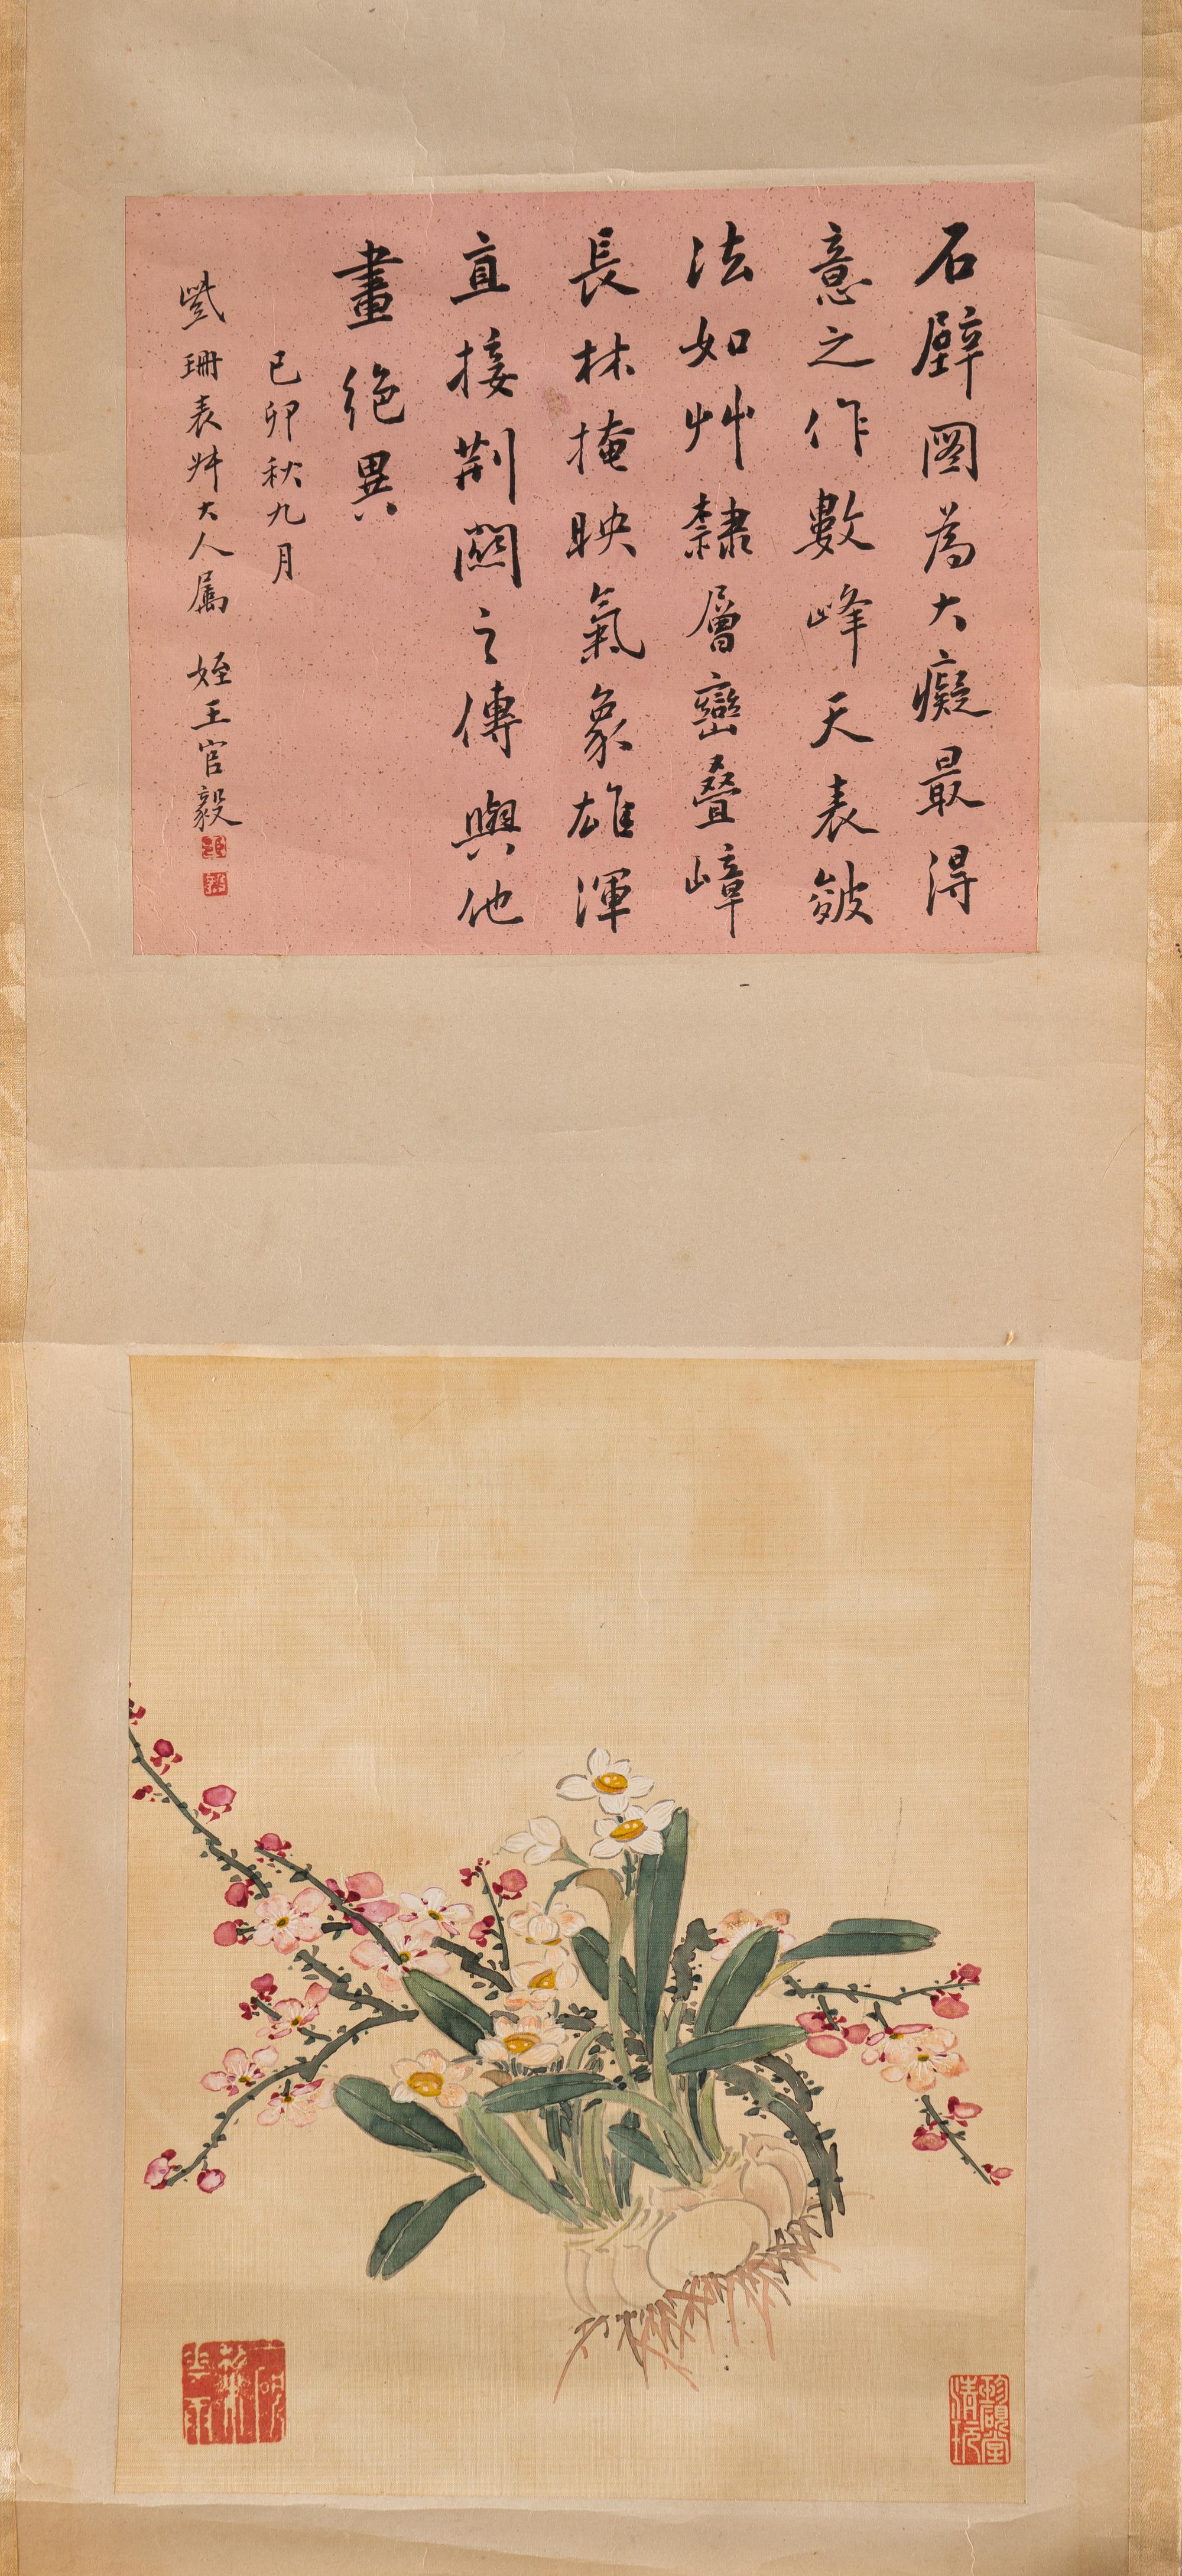 石壁圖為大癡最得
意之作數峰天表皴
法如艸隸層巒疊嶂
長林掩映氣象雄渾
直接荆關之傳與他
畫絕異
己卯秋九月
珊表叔大人属 姪王官毅
清玩